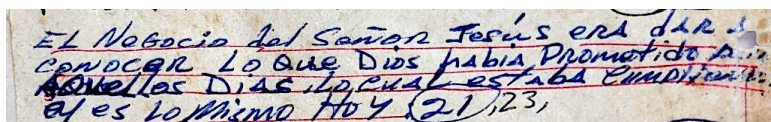 EL Negocio del Señor Jesús erA dAR A
conocer Lo Que Dios habiA Prometido
AQuellos DiAs, Lo cuAL estABA Cumpliendo
el es Lo Mismo HoY 21, 23,